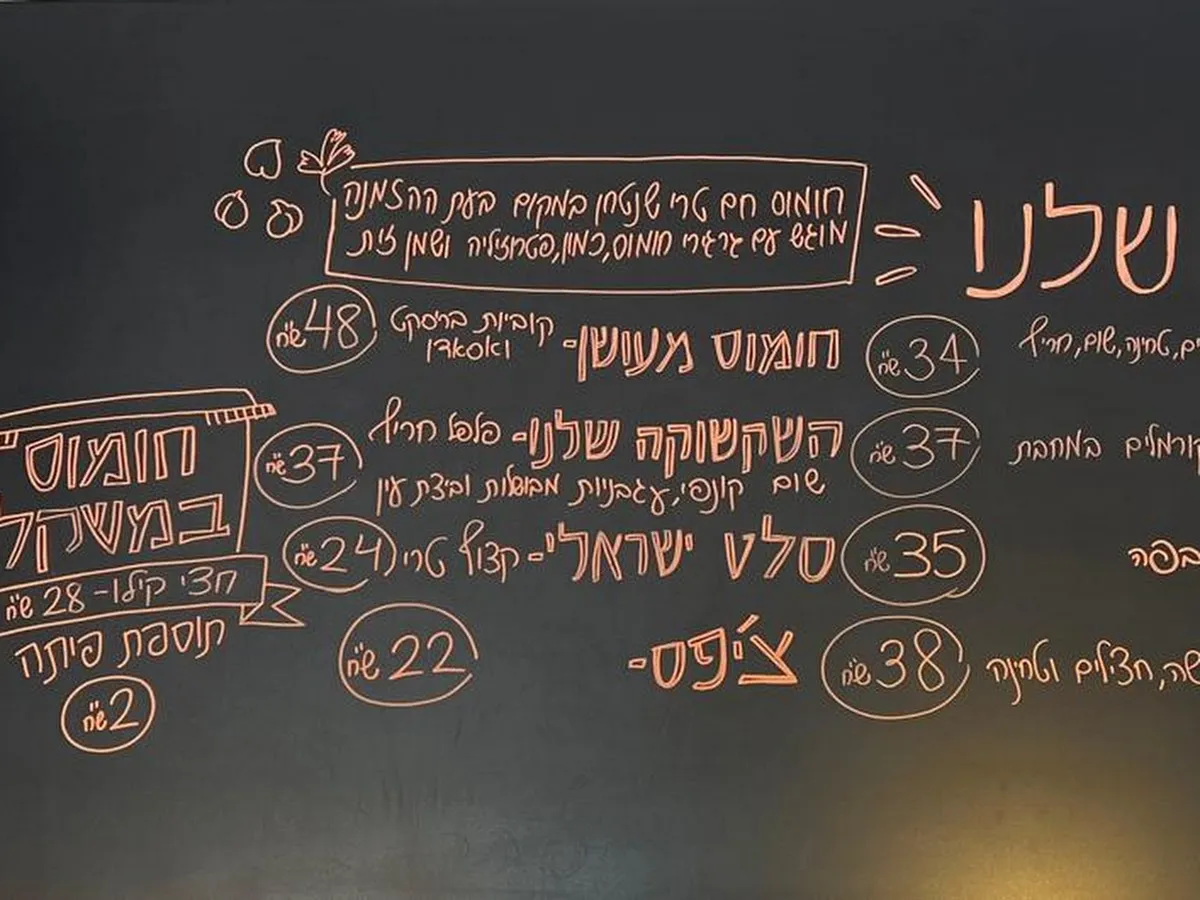 שלנו
חומוס חם טרי שנטחן במקום בעת ההזמנה
מוגש עם גרגירי חומוס, כמון, פטרוזיליה ושמן זית
טחינה, שום, חריף
34 ש"ח
במחבת
37 ש"ח
35 ש"ח
חצילים וטחינה
38 ש"ח
חומוס מעושן- קוביות בריסקט
ואסאדו
48 ש"ח
השקשוקה שלנו- פלפל חריף
שום קונפי, עגבניות מבושלות וביצת עין
37 ש"ח
סלט ישראלי- קצוץ טרי
24 ש"ח
צ'יפס-
22 ש"ח
חומוס
במשקל
חצי קילו- 28 ש"ח
תוספת פיתה
2 ש"ח